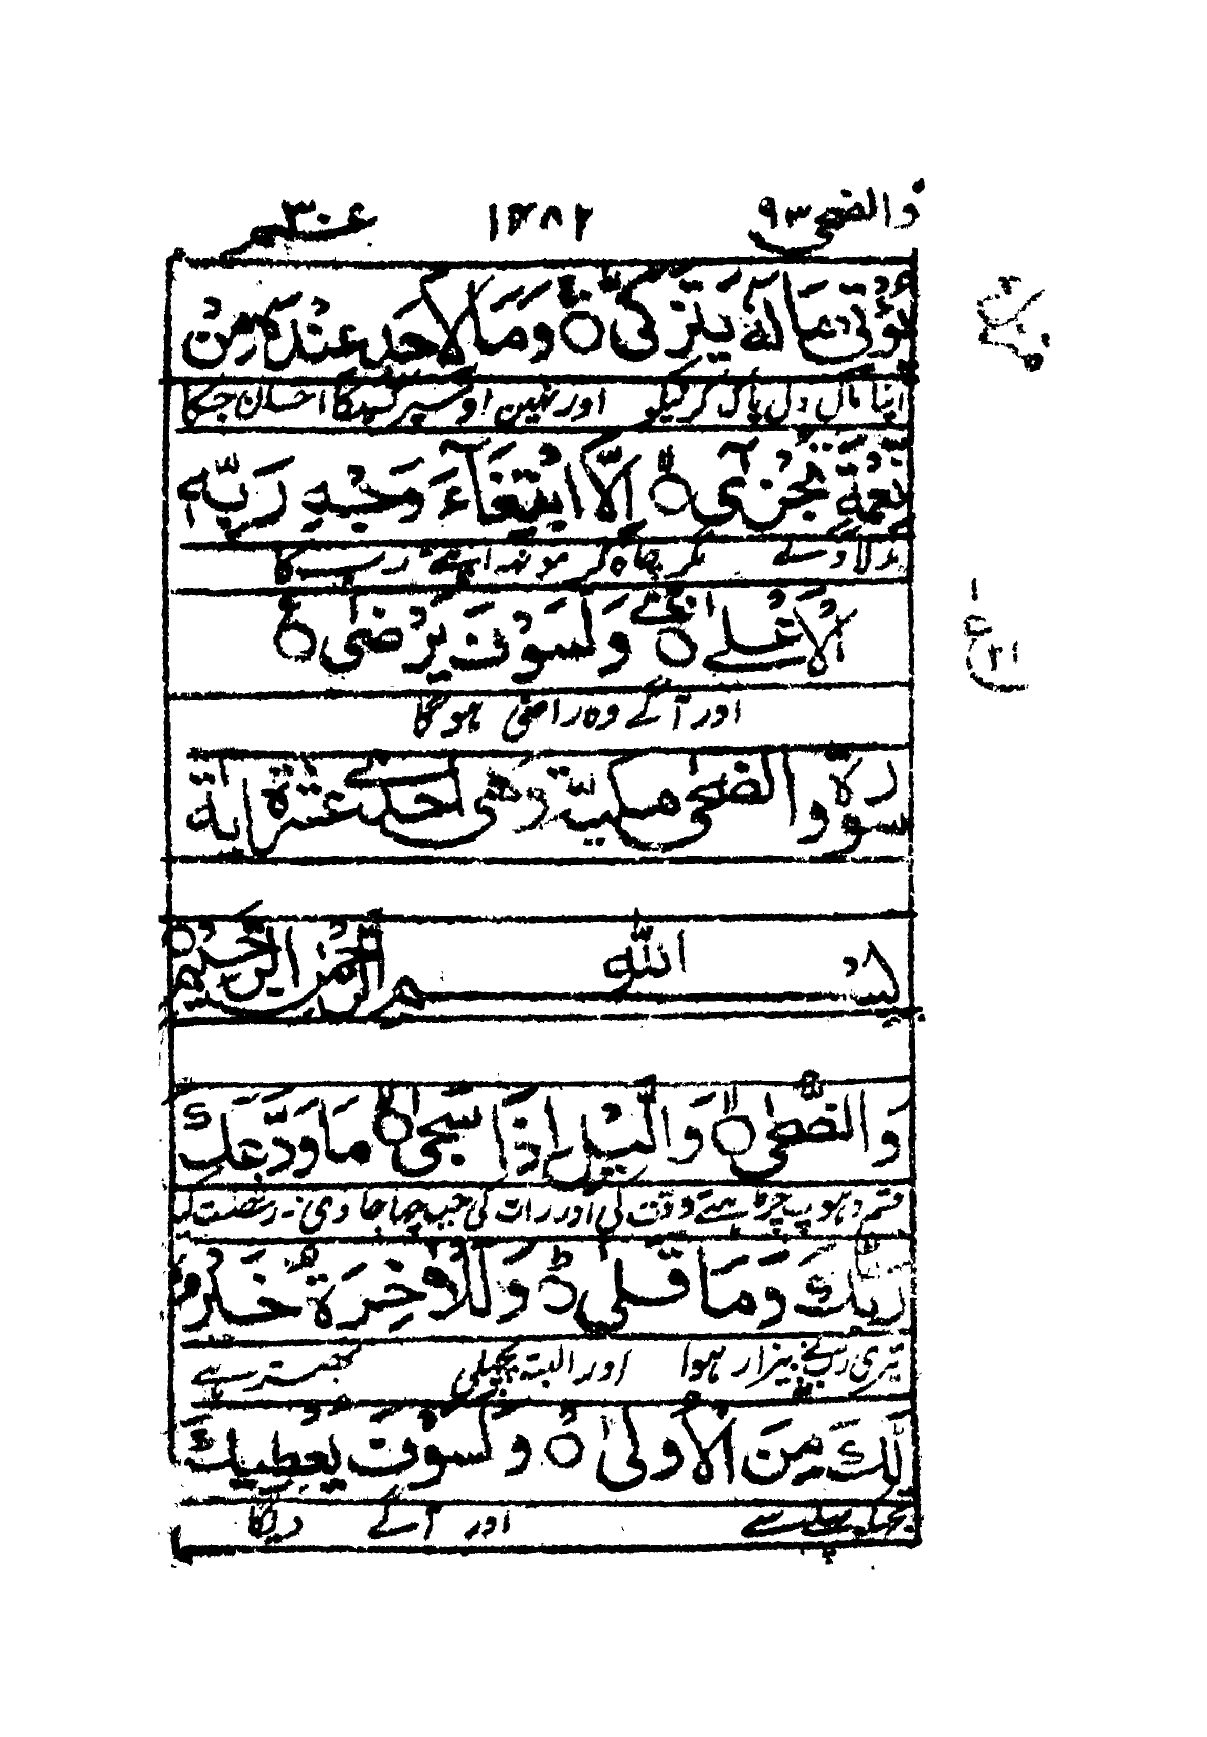 والضحى ٩٣ ١٣٨٢ عم ٣٠
يُؤْتِىْ مَالَهٗ يَتَزَكّٰى ۚ وَمَا لِاَحَدٍ عِنْدَهٗ مِنْ
اپنا مال دل پاک کرنیکو اور نہین اوسپر کسیکا احسان جسکا
نِّعْمَةٍ تُجْزٰٓى ۙ اِلَّا ابْتِغَآءَ وَجْهِ رَبِّهِ
بدلا دے مگر چاہ کر مونہہ اپنے رب کا
الْاَعْلٰى ۚ وَلَسَوْفَ يَرْضٰى ۚ
اور آگے وہ راضی ہوگا
سورة والضحى مكية وهى احدے عشرة اية
بسم الله الرحمن الرحيم
وَالضُّحٰى ۙ وَالَّيْلِ اِذَا سَجٰى ۙ مَا وَدَّعَكَ
قسم دہوپ چڑہتے وقت کی اور رات کی جب چھا جاوی نہ رخصت کیا
رَبُّكَ وَمَا قَلٰى ؕ وَلَلْاٰخِرَةُ خَيْرٌ
تیری رب نے نہ بیزار ہوا اور البتہ پچھلی بہتر ہے
لَّكَ مِنَ الْاُوْلٰى ؕ وَلَسَوْفَ يُعْطِيْكَ
تجکو پہلی سے اور آگے دیگا